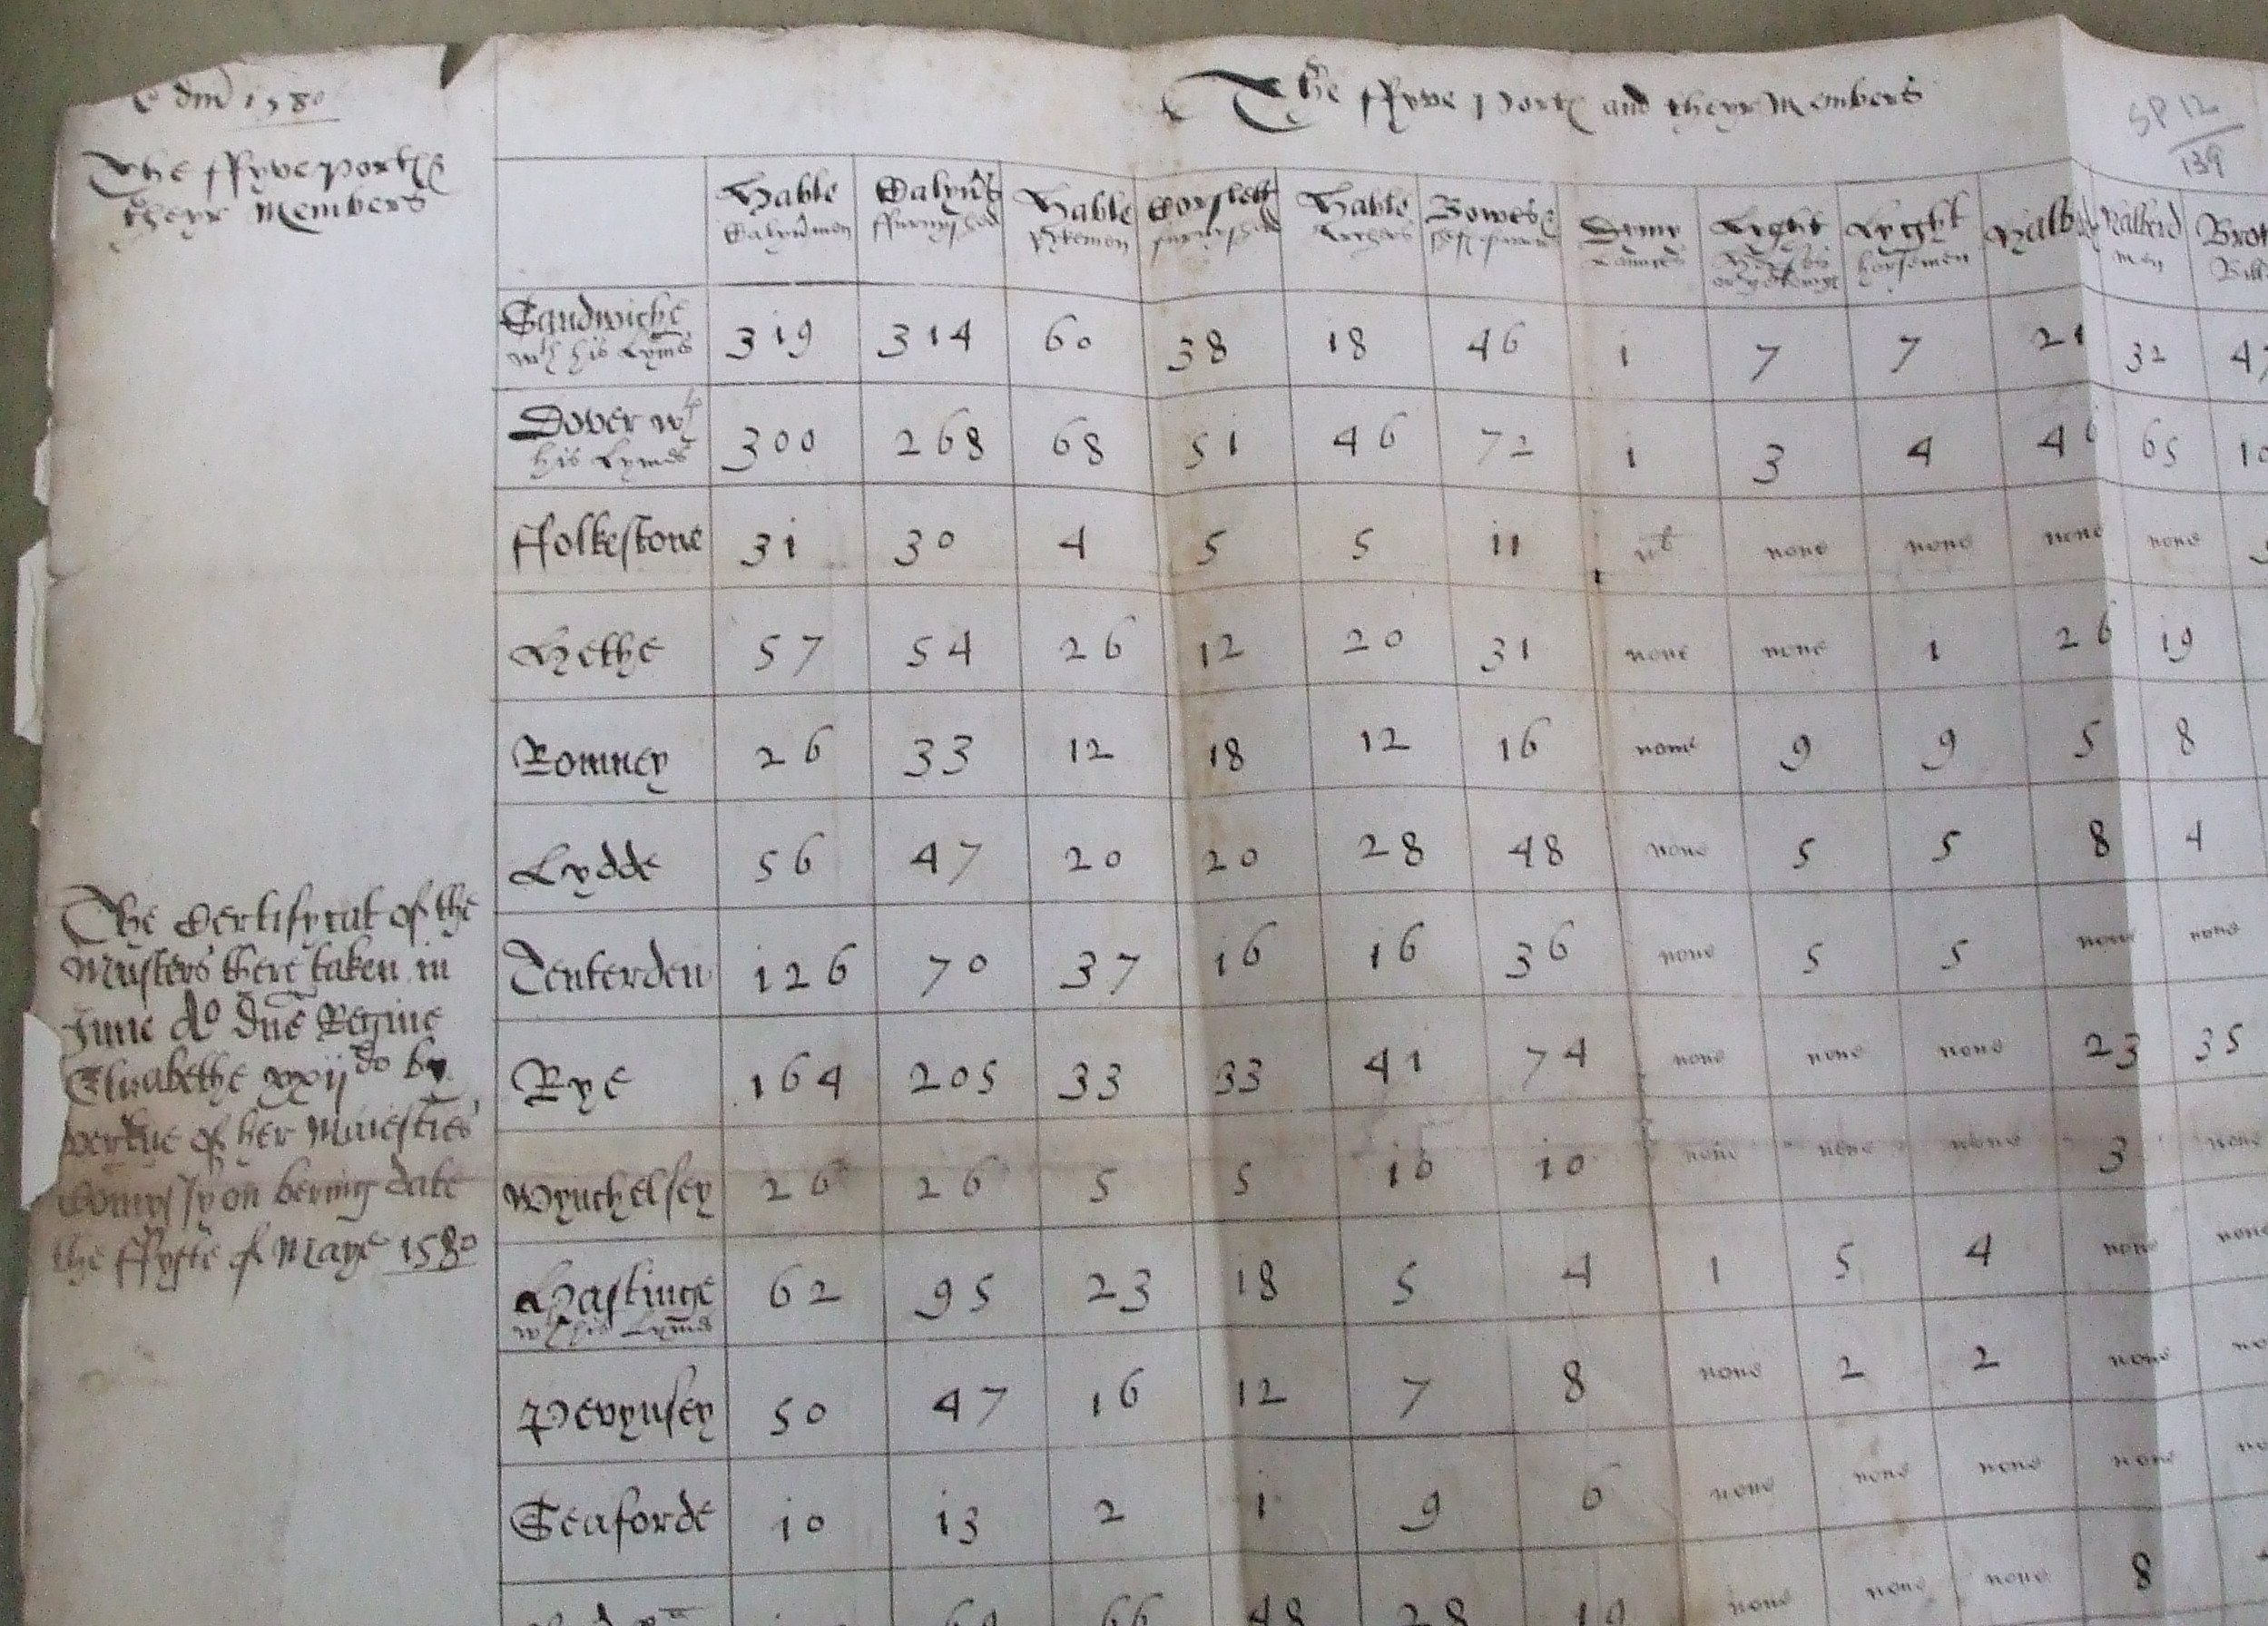 dni 1580
The ffyve portes
theyr Members
The Certifycat of the
Musters there taken in
June Ao dne Regine
Elizabethe xxij do by
vertue of her Maiesties
Comyssyon bering date
the ffyfte of Maye 1580
The ffyve Portes and theyr Members
SP 12
139
Hable Calyu'men
Calyu's ffurnyshed
Hable Pykemen
Corslett furnyshed
Hable Archers
Bowes
Demy Launces
Lyght
Lyght horsemen
Halb
Halberd men
Sandwiche wth his Lyms 319 314 60 38 18 46 1 7 7 21 32
Dover wth his Lyms 300 268 68 51 46 72 1 3 4 46 65
ffolkestone 31 30 4 5 5 11 none none none none
Hethe 57 54 26 12 20 31 none none 1 26 19
Romney 26 33 12 18 12 16 none 9 9 5 8
Lydde 56 47 20 20 28 48 none 5 5 8 4
Tenterden 126 70 37 16 16 36 none 5 5 none none
Rye 164 205 33 33 41 74 none none none 23 35
Wynchelsey 26 26 5 5 16 10 none none none 3 none
Hastinge wth his Lyms 62 95 23 18 5 4 1 5 4 none none
Pevynsey 50 47 16 12 7 8 none 2 2 none no
Seaforde 10 13 2 1 9 6 none none none none no
66 48 28 none none none 8